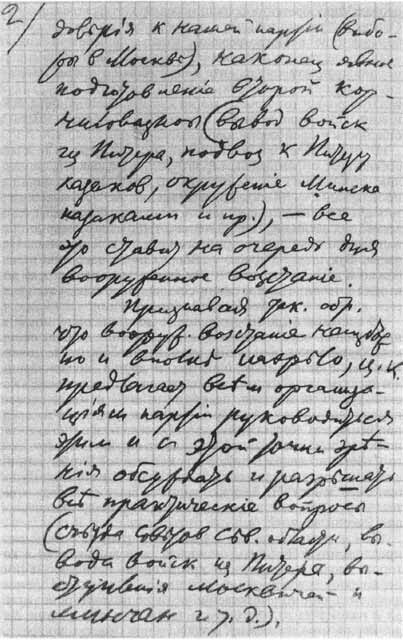 2/
довѣрія к нашей партіи (выбо-
ры в Москвѣ), наконец явное
подготовленіе второй кор-
ниловщины (вывод войск
из Питера, подвоз к Питеру
казаков, окруженіе Минска
казаками и пр.), — все
это ставит на очередь дня
вооруженное возстаніе.
Признавая так. обр.
что вооруж. возстаніе неизбѣж
но и вполнѣ назрѣло, Ц.К.
предлагает всѣм организа-
ціям партіи руководиться
этим и с этой точки зрѣ-
нія обсуждать и разрѣшать
всѣ практическіе вопросы
(съѣзда совѣтов Сѣв. области, вы-
вода войск из Питера, вы-
ступленія москвичей и
минчан и т. д.).